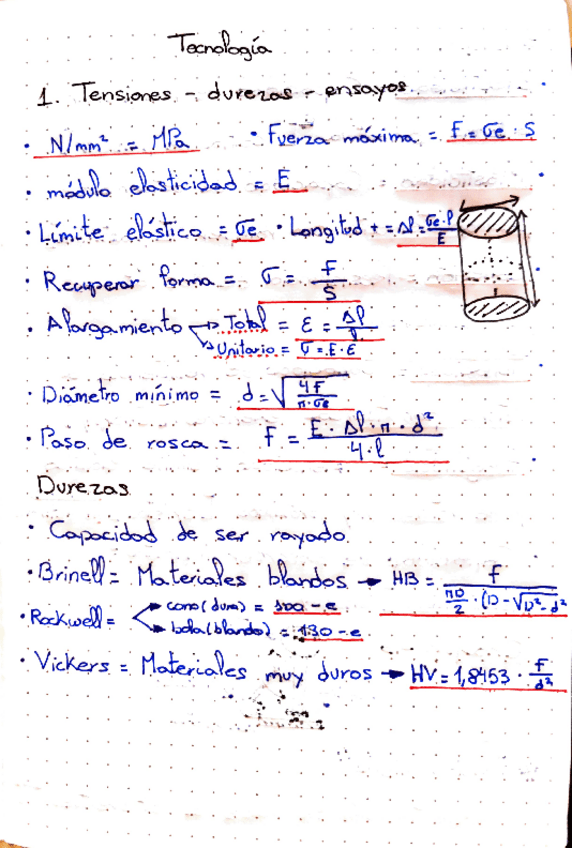 Tecnología
1. Tensiones - durezas - ensayos
· N/mm² = MPa · Fuerza máxima = F = σe · S
· módulo elasticidad = E
· Límite elástico = σe · Longitud + = Δl = σe·l/E
· Recuperar forma = σ = F/S
· Alargamiento → Total = ε = Δl/l
↳ Unitario = σ = E·ε
· Diámetro mínimo = d = √(4F/π·σe)
· Paso de rosca = F = E · Δl · π · d²/4·l
Durezas
· Capacidad de ser rayado
· Brinell = Materiales blandos → HB = F/(πD/2 · (D - √D² - d²
· Rockwell = → cono (duro) = 100 - e
→ bola (blando) = 130 - e
· Vickers = Materiales muy duros → HV = 1,8453 · F/d²